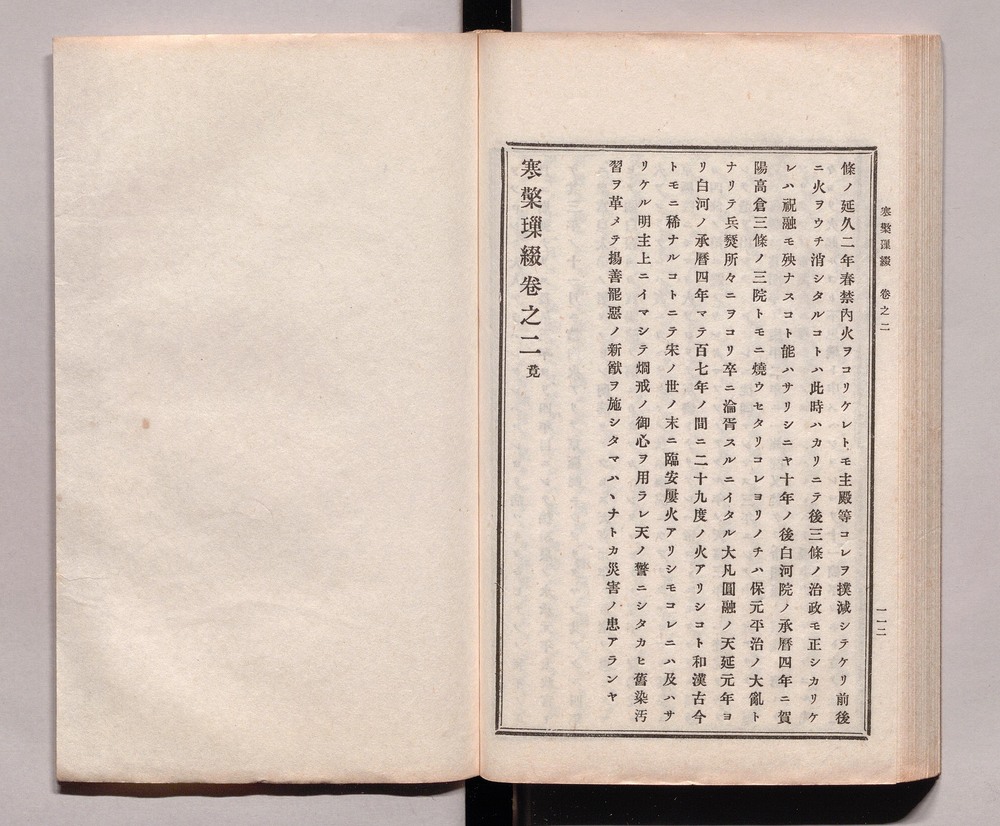 寒檠璅綴　卷之二
一一二
條ノ延久二年春禁內火ヲコリケレトモ主殿等コレヲ撲滅シテケリ前後
ニ火ヲウチ消シタルコトハ此時ハカリニテ後三條ノ治政モ正シカリケ
レハ祝融モ殃ナスコト能ハサリシニヤ十年ノ後白河院ノ承曆四年ニ賀
陽高倉三條ノ三院トモニ燒ウセタリコレヨリノチハ保元平治ノ大亂ト
ナリテ兵燹所々ニヲコリ卒ニ淪胥スルニイタル大凡圓融ノ天延元年ヨ
リ白河ノ承曆四年マテ百七年ノ間ニ二十九度ノ火アリシコト和漢古今
トモニ稀ナルコトニテ宋ノ世ノ末ニ臨安屢火アリシモコレニハ及ハサ
リケル明主上ニイマシテ燗戒ノ御心ヲ用ラレ天ノ警ニシタカヒ舊染汚
習ヲ革メテ揚善罷惡ノ新猷ヲ施シタマハヽナトカ災害ノ患アランヤ
寒檠璅綴卷之二竟